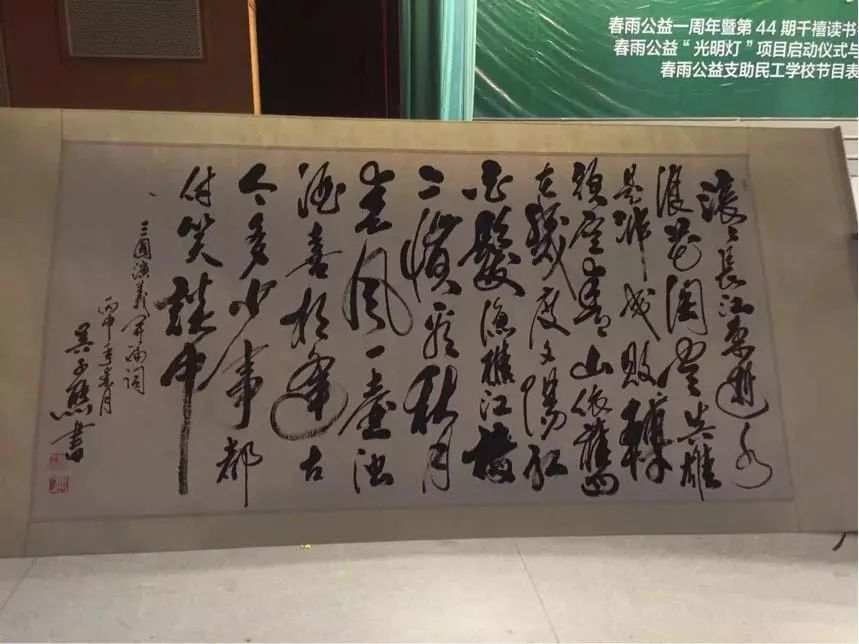 春雨公益一周年暨第 44 期千禧读书
春雨公益“光明灯”项目启动仪式与
春雨公益支助民工学校节目表
滚〻長江東逝水
浪花淘盡英雄
是非成敗轉
頭空青山依舊
在幾度夕陽紅
白髮漁樵江渚
上慣看秋月
春風一壶濁
酒喜相逢古
今多少事都
付笑談中
三國演義開編詞
丙申年春月
吴子熊書